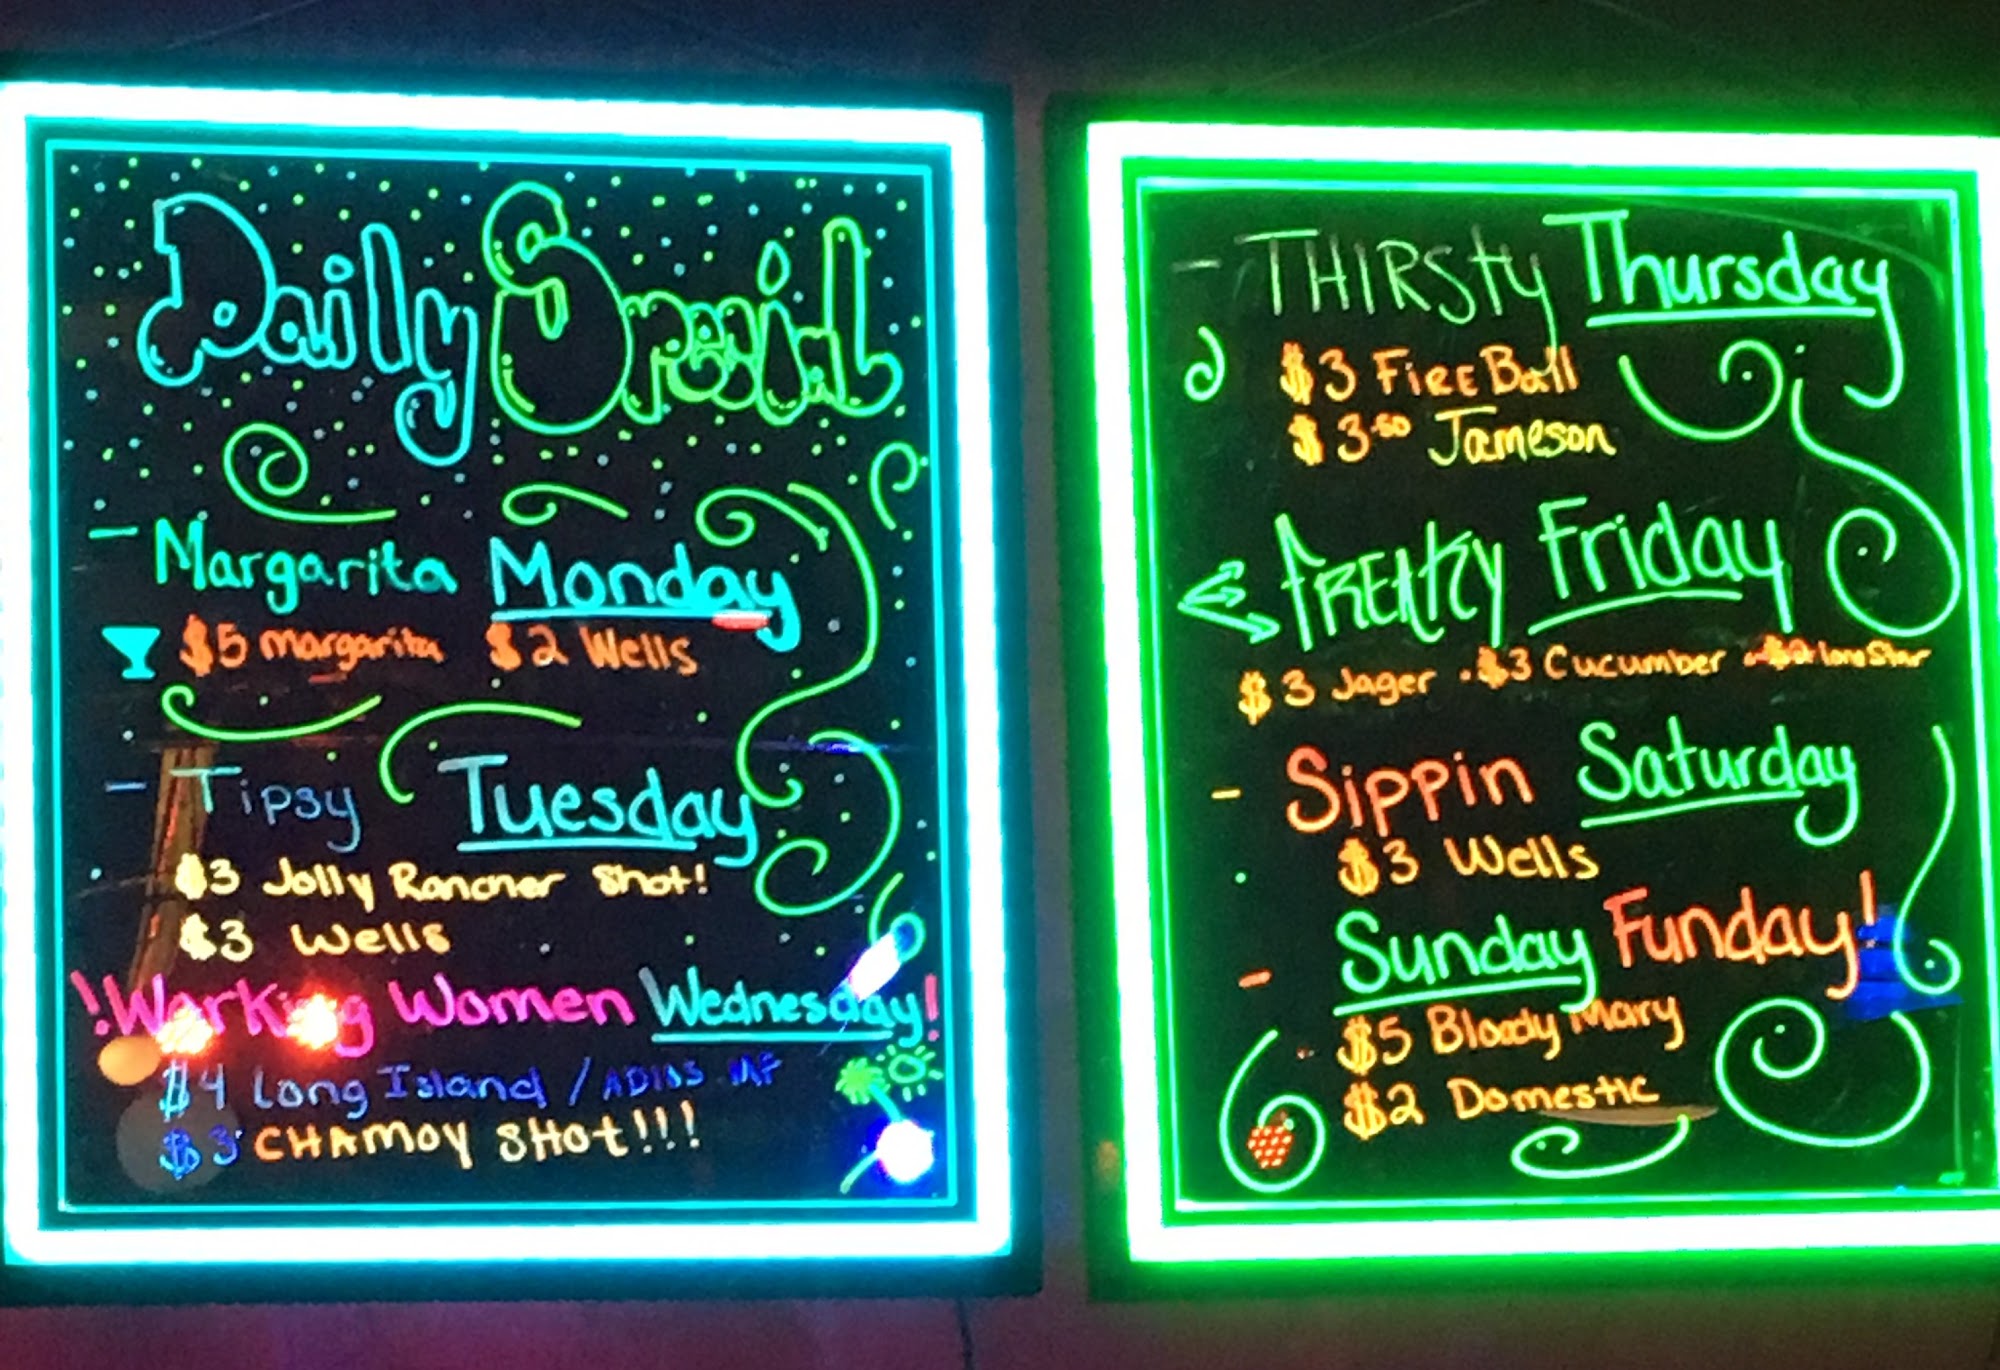 Daily Special
- Margarita Monday
$5 margarita $2 Wells
- Tipsy Tuesday
$3 Jolly Rancher Shot!
$3 Wells
!Working Women Wednesday!
$4 Long Island / ADIOS MF
$3 CHAMOY SHOt!!!
- THIRSty Thursday
$3 FireBall
$3.50 Jameson
FREAKY Friday
$3 Jager · $3 Cucumber · $2 lone Star
- Sippin Saturday
$3 Wells
- Sunday Funday!
$5 Bloody Mary
$2 Domestic